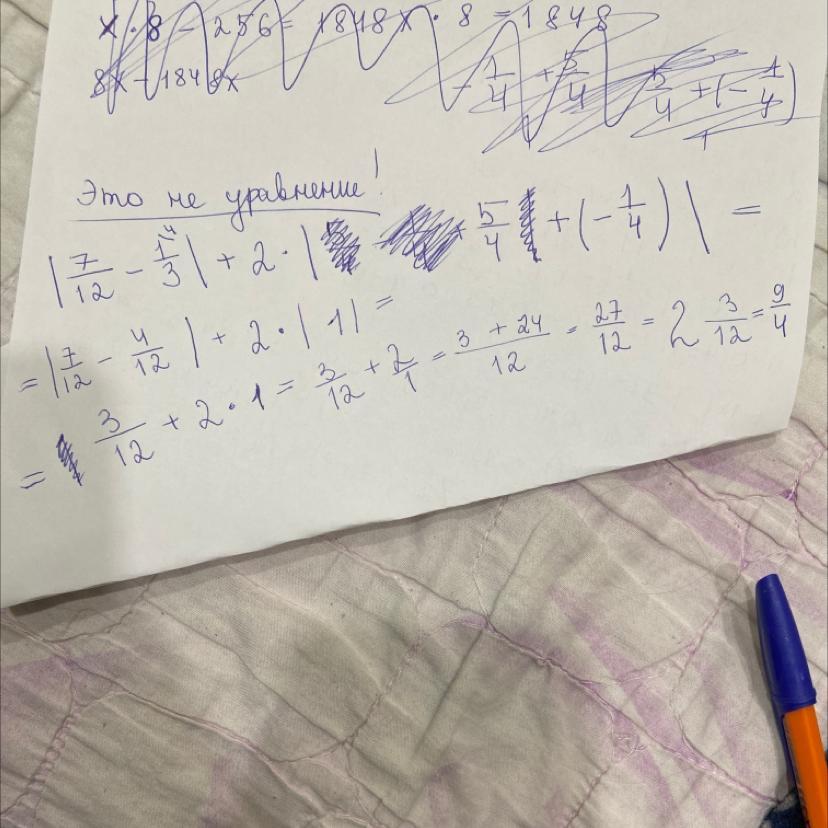 x · 8 - 256 = 1848x · 8 = 1848
8x - 1848x
- 1/4 + 5/4
5/4 + (- 1/4)
Это не уравнение!
|7/12 - 1/3^4| + 2 · | 5/4 + (- 1/4)| =
= |7/12 - 4/12| + 2 · |1| =
= 3/12 + 2 · 1 = 3/12 + 2/1 = 3 + 24/12 = 27/12 = 2 3/12 = 9/4